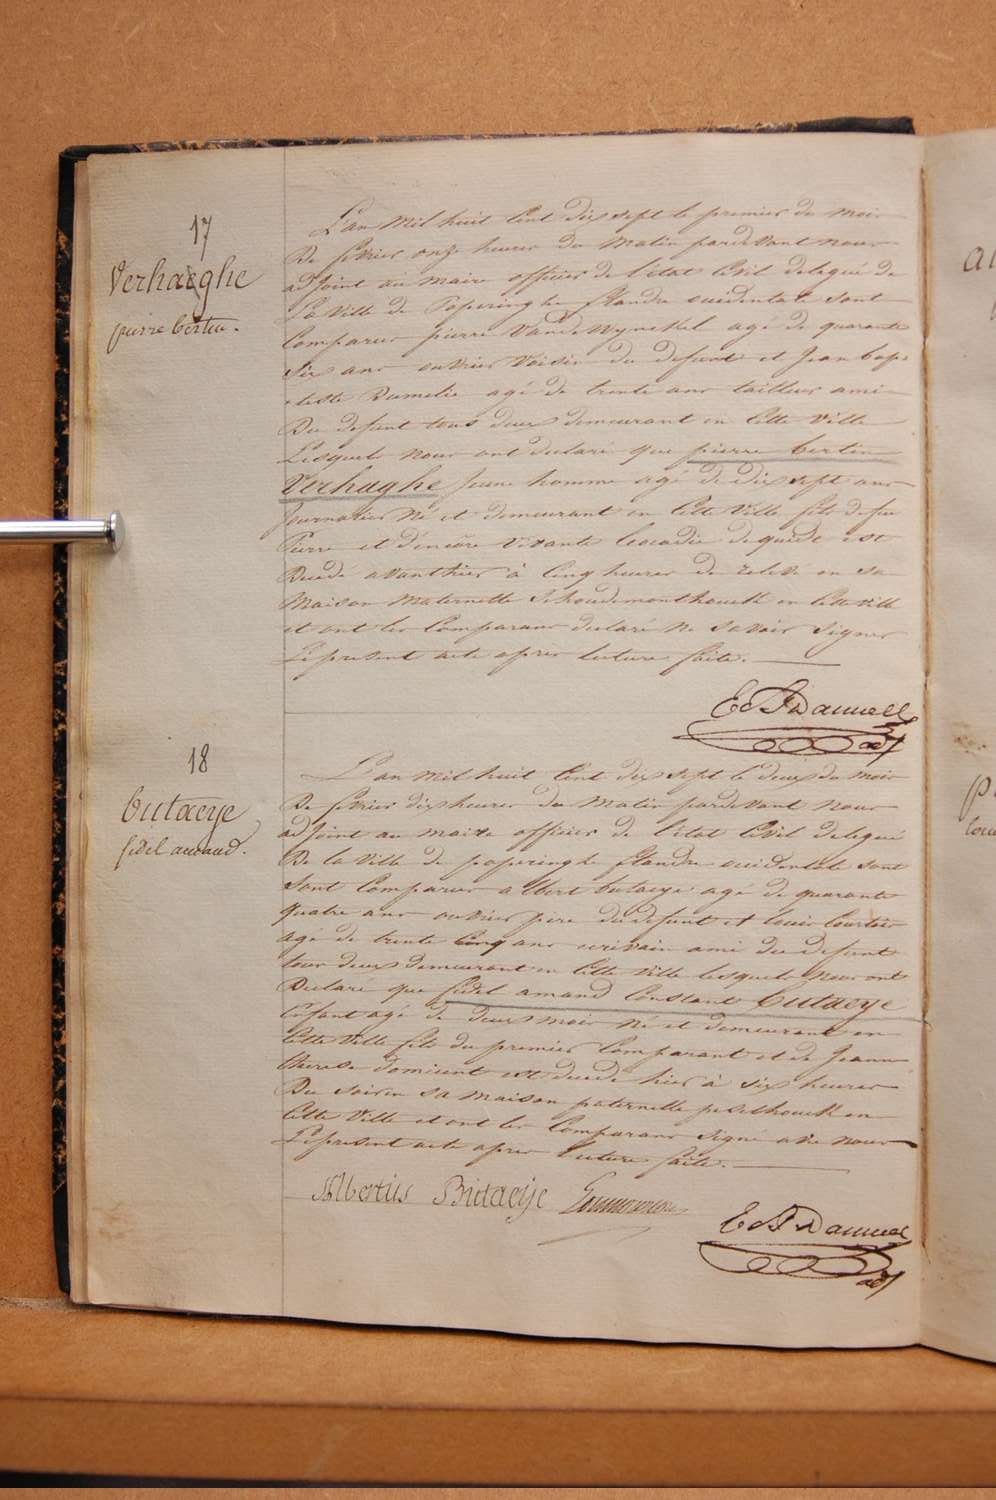 17
Verhaeghe
pierre bertin.
L'an mil huit cent dix sept le premier du mois
De fevrier onze heures du matin pardevant nous
adjoint au maire officier de l'état Civil delegué de
La Ville de Poperinghe flandre occidentale sont
Comparus pierre Vande Wynckel agé de quarante
Six ans ouvrier Voisin du defunt et Jean bap=
=tiste Ramelie agé de trente ans tailleur ami
Du defunt tous deux demeurant en Cette Ville
Lesquels nous ont declaré que pierre bertin
Verhaghe Jeune homme agé de dix sept ans
Journalier né et demeurant en Cette Ville fils de feu
Pierre et d'encore Vivante Leocadie dequidt est
Decedé avanthier à Cinq heures de relevé en sa
Maison maternelle en Cette Ville
et ont les Comparans declaré ne savoir signer
Le present acte apres lecture faite.
18
butaeye
fidel amand.
L'an mil huit Cent dix sept le deux du mois
De fevrier dix heures du matin pardevant nous
adjoint au maire officier de l'état Civil delegué
De la Ville de poperinghe flandre occidentale sont
Sont Comparus albert butaeye agé de quarante
quatre ans ouvrier pere du defunt et louis Courtois
agé de trente Cinq ans ecrivain ami du defunt
tous deux demeurant en Cette Ville lesquels nous ont
Declaré que fidel amand Constant butaeye
Enfant agé de deux mois né et demeurant en
Cette Ville fils du premier Comparant et de Jeanne
therese domicent est decedé hier à six heures
Du soir en sa maison paternelle en
Cette Ville et ont les Comparans Signé avec nous
Le present acte apres lecture faite.
Albertus Butaeije